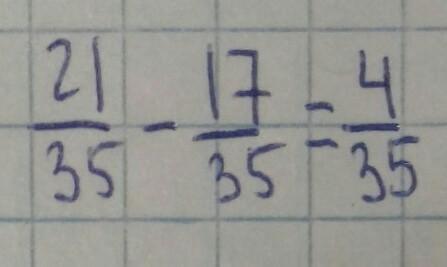 21/35 - 17/35 = 4/35